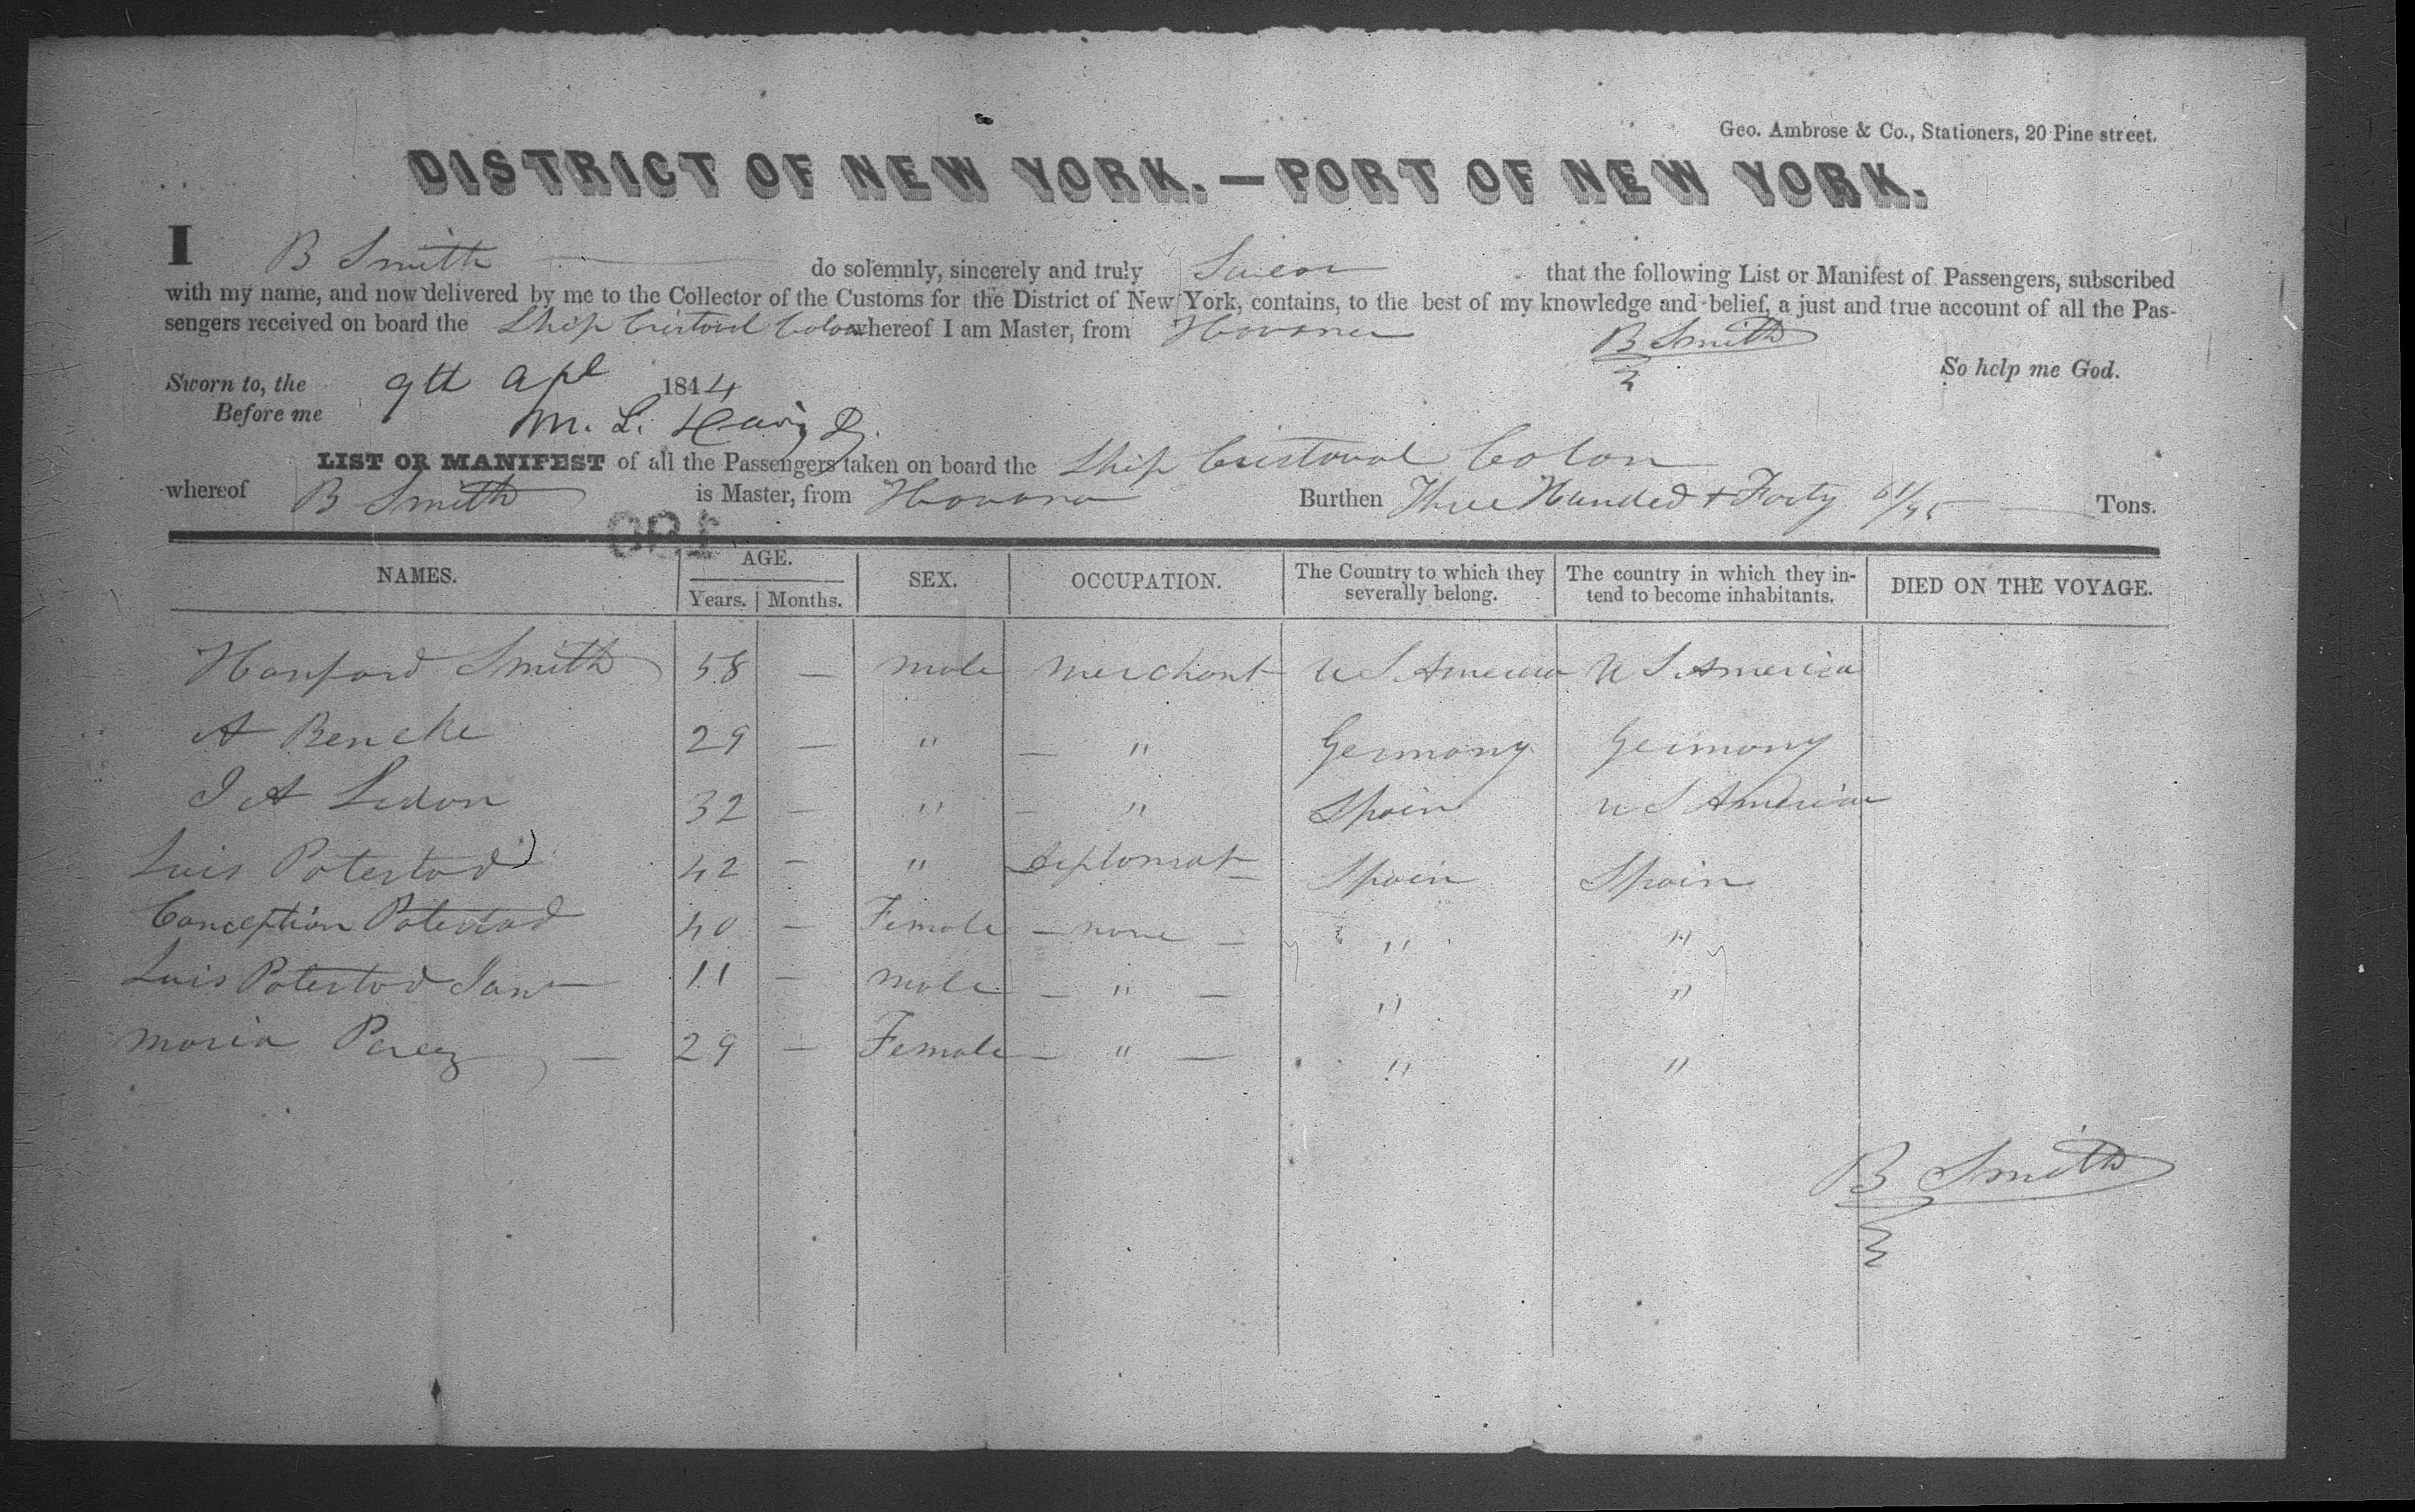 Geo. Ambrose & Co., Stationers, 20 Pine street.
DISTRICT OF NEW YORK.—PORT OF NEW YORK.
I B Smith do solemnly, sincerely and truly Swear that the following List or Manifest of Passengers, subscribed
with my name, and now delivered by me to the Collector of the Customs for the District of New York, contains, to the best of my knowledge and belief, a just and true account of all the Pas-
sengers received on board the Ship Cristoval Colon whereof I am Master, from Havana
B Smith
So help me God.
Sworn to, the 9th Apl 1844
Before me M. L.
LIST OR MANIFEST of all the Passengers taken on board the Ship Cristoval Colon
whereof B Smith is Master, from Havana Burthen Three Hundred + Forty 61/95 Tons.
190
NAMES. AGE. Years. Months. SEX. OCCUPATION. The Country to which they severally belong. The country in which they in-tend to become inhabitants. DIED ON THE VOYAGE.
Hanford Smith 58 — male merchant U S America U S America
A Rencke 29 — " — " Germany Germany
J A Ledon 32 — " — " Spain U S America
Luis Potestad 42 — " diplomat Spain Spain
Conception Potestad 40 — Female — none — " "
Luis Potestad Junr 11 — male — " — " "
Maria Perez — 29 — Female — " — " "
B Smith